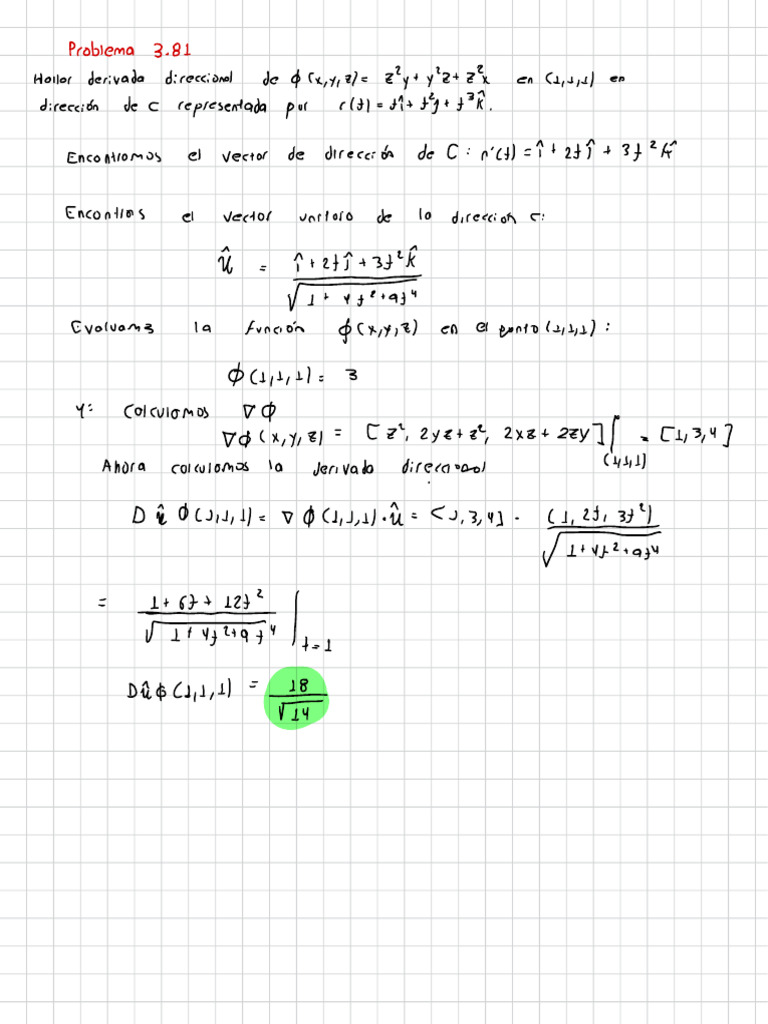 Problema 3.81
Hallar derivada direccional de ϕ(x,y,z) = z²y + y²z + z²x en (1,1,1) en
dirección de C representada por r(t) = tî + t²ĵ + t³k̂.
Encontramos el vector de dirección de C: r'(t) = î + 2tĵ + 3t²k̂
Encontrams el vector unitario de la direccion c:
û = (î + 2tĵ + 3t²k̂) / √(1 + 4t² + 9t⁴)
Evaluams la función ϕ(x,y,z) en el punto (1,1,1):
ϕ(1,1,1) = 3
Y: Calculamos ∇ϕ
∇ϕ(x,y,z) = [z², 2yz + z², 2xz + 2zy]|(1,1,1) = [1,3,4]
Ahora calculamos la derivada direccional
Dû ϕ(1,1,1) = ∇ϕ(1,1,1)·û = [1,3,4] · (1, 2t, 3t²) / √(1 + 4t² + 9t⁴)
= (1 + 6t + 12t²) / √(1 + 4t² + 9t⁴) |t=1
Dûϕ(1,1,1) = 18 / √14